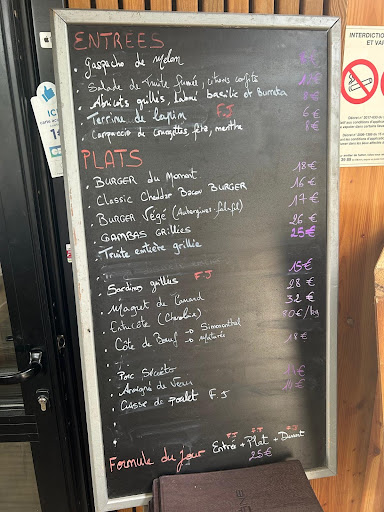 ENTREES
. Gaspacho de melon 8€
. Salade de Truite fumée, citrons confits 11€
. Abricots grillés, labné, basilic et Burrata 8€
. Terrine de lapin F.J 6€
. Carpaccio de courgettes, féta, menthe 6€
PLATS
. BURGER du Moment 18€
. Classic Cheddar Bacon BURGER 16€
. BURGER Végé (Aubergines-falafel) 17€
. GAMBAS GRILLÉES 26€
. Truite entière grillée 25€
. Sardines grillées F J 15€
. Magret de Canard 28€
. Entrecôte (Charolaise) 32€
. Côte de Boeuf → Simmenthal 80€/kg
→ Maturée
. Porc 18€
. Araignée de Veau
. Cuisse de poulet F J 14€
Formule du Jour
F J F J F J
Entrée + Plat + Dessert
25€
INTERDICTION
ET VAP